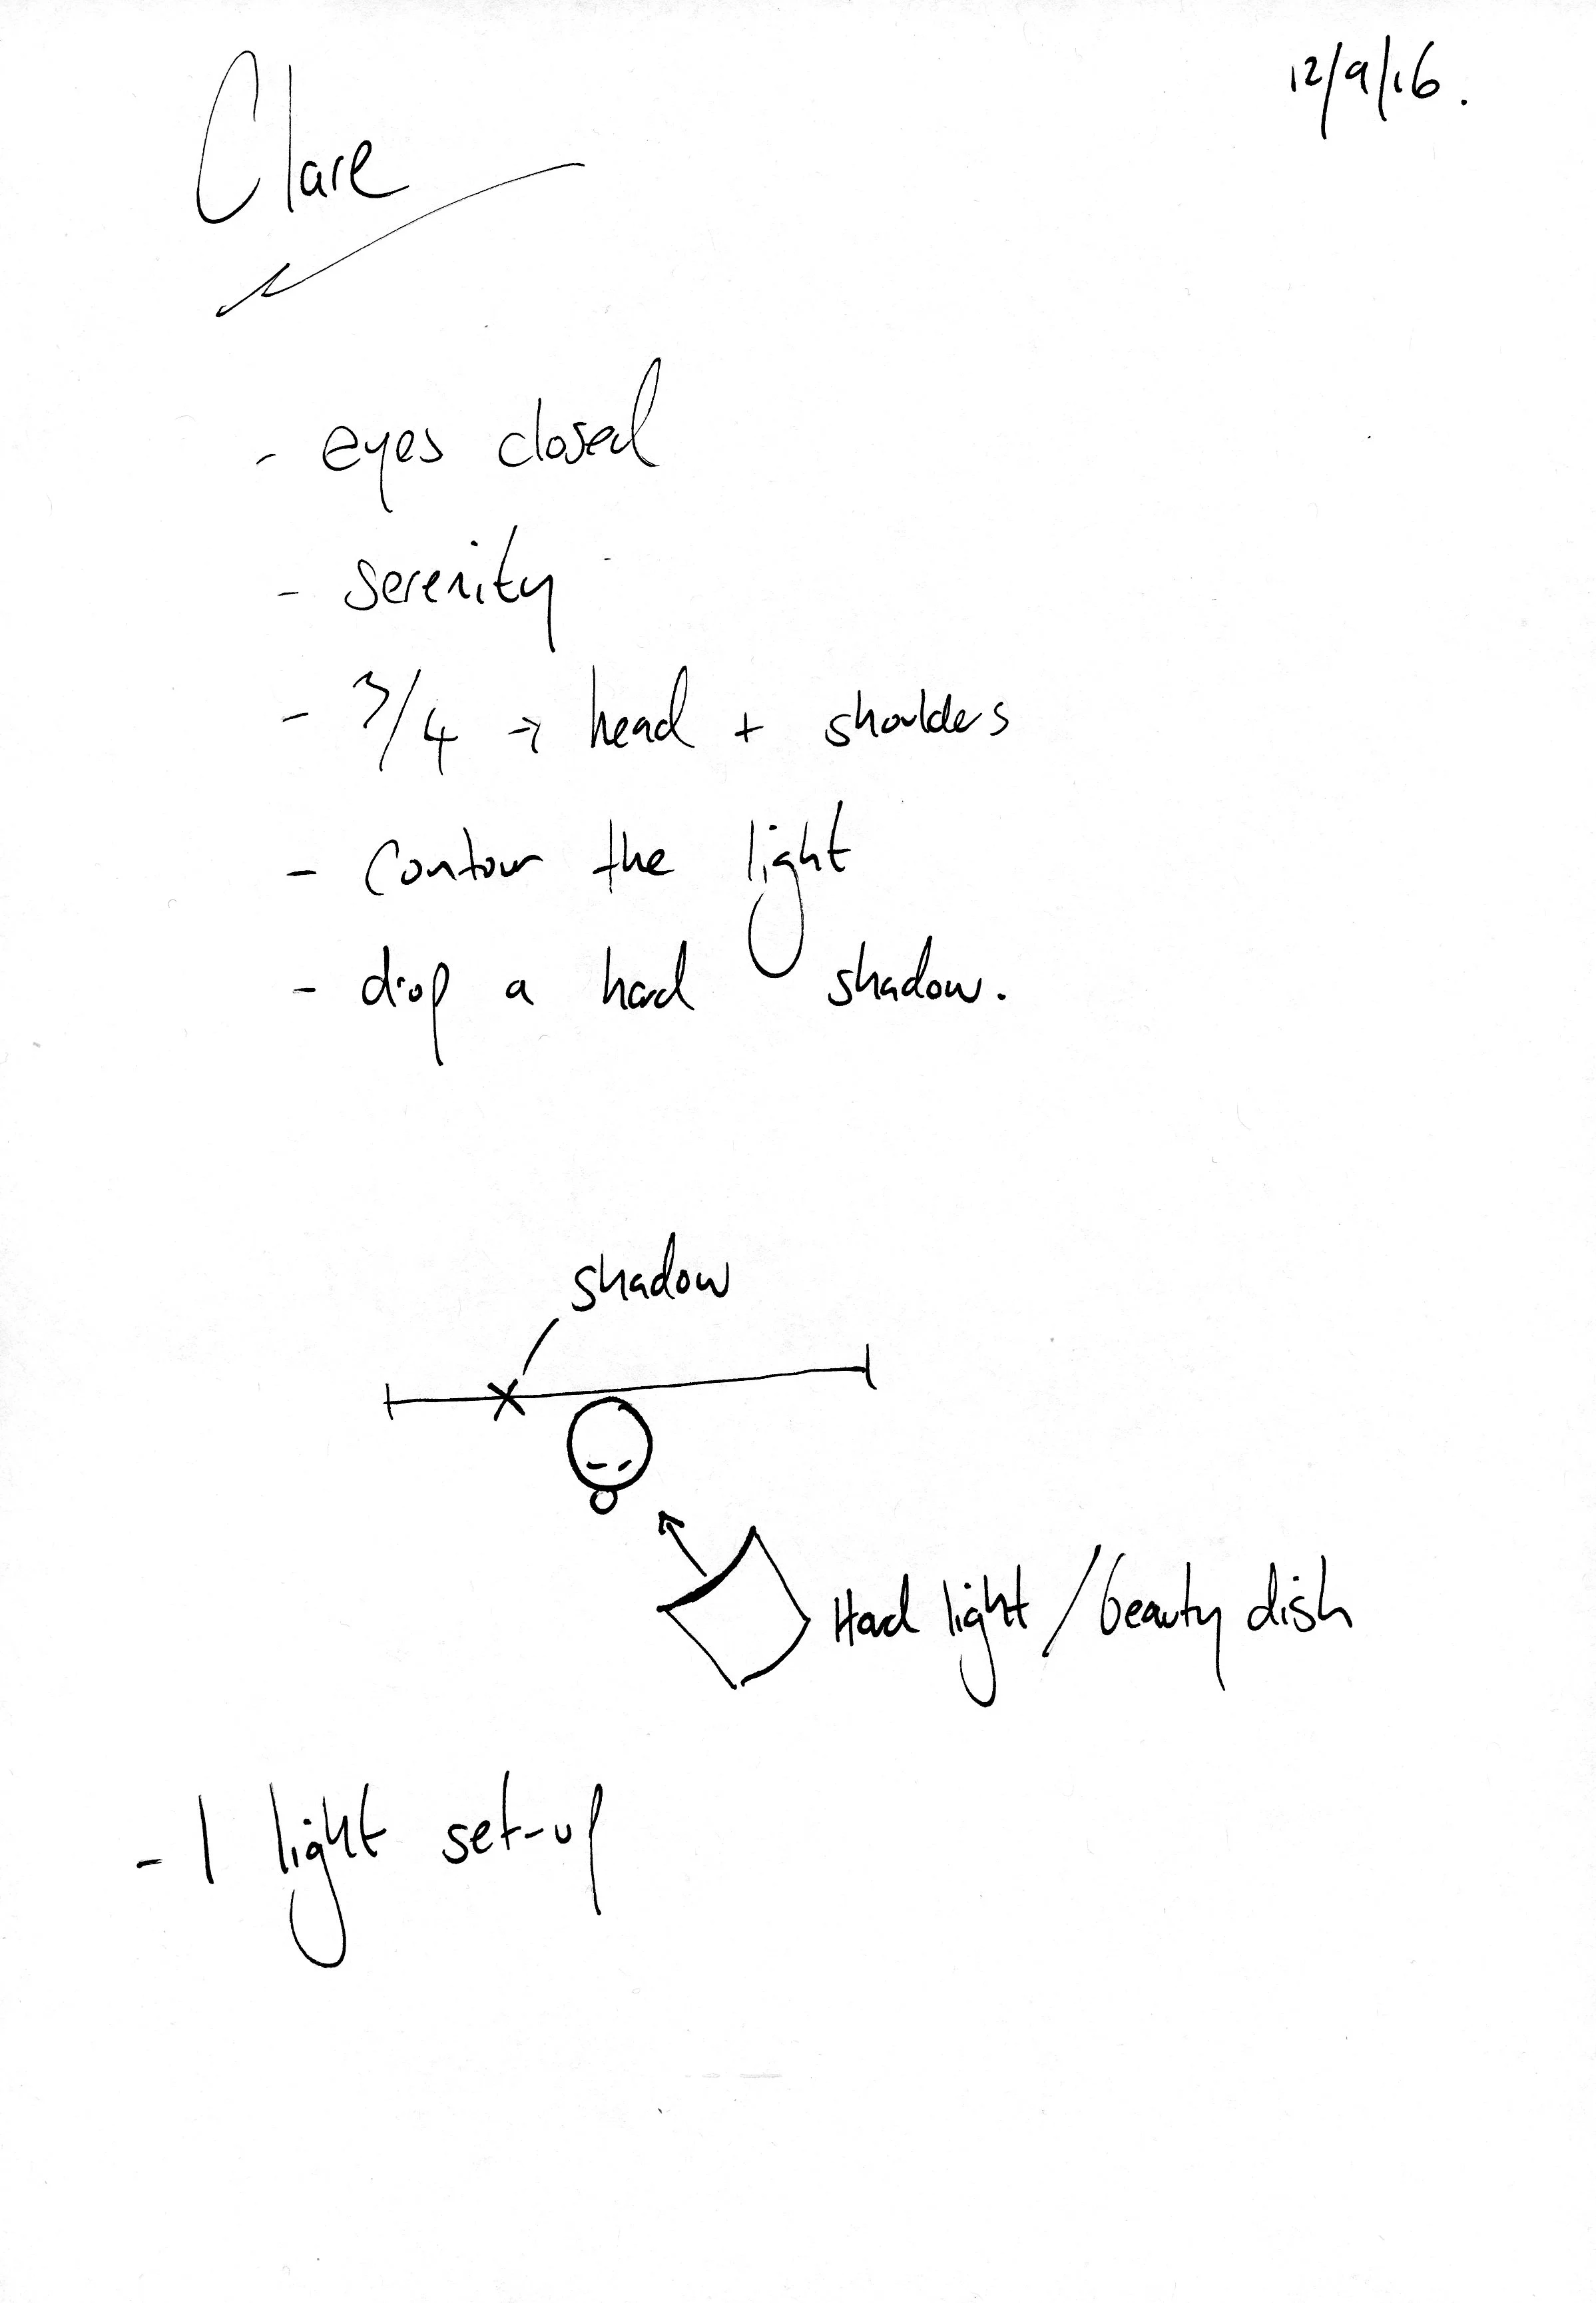 12/9/16.
Clare
- eyes closed
- serenity
- 3/4 → head + shoulders
- contour the light
- drop a hard shadow.
shadow
Hard light / beauty dish
- 1 light set-up